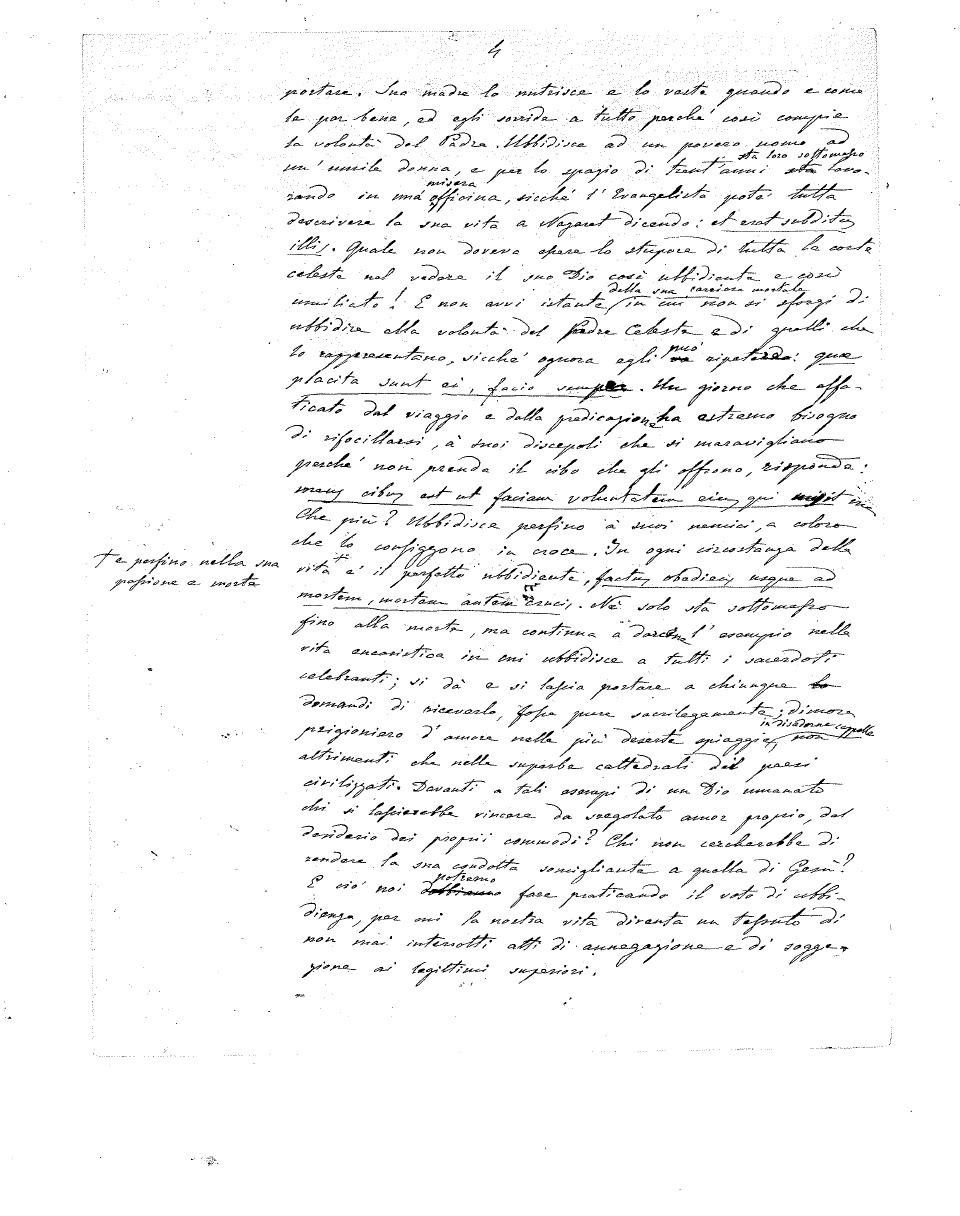 4
portare. Sua madre lo nutrisce e lo veste quando e come
le par bene, ed egli sorride a tutto perché così compie
la volontà del Padre. Ubbidisce ad un povero uomo ad
un' umile donna, e per lo spazio di trent'anni sta loro sottomesso lavo-
rando in una misera officina, sicché l' Evangelista poté tutta
descrivere la sua vita a Nazaret dicendo: et erat subditus
illis. Quale non doveva essere lo stupore di tutta la corte
celeste nel vedere il suo Dio così ubbidiente e così
umiliato! E non avvi istante della sua carriera mortale in cui non si sforzi di
ubbidire alla volontà del Padre Celeste e di quelli che
lo rappresentano, sicché ognora egli può ripetere: quae
placita sunt ei, facio semper. Un giorno che affa-
ticato dal viaggio e dalla predicazione ha estremo bisogno
di rifocillarsi, à suoi discepoli che si maravigliano
perché non prenda il cibo che gli offrono, risponde:
meus cibus est ut faciam voluntatem eius qui misit me
Che più? Ubbidisce perfino à suoi nemici, a coloro
che lo configgono in croce. In ogni circostanza della
vita + è il perfetto ubbidiente, factus obediens usque ad
+ e perfino nella sua
passione e morte
mortem, mortem autem crucis. Nè solo sta sottomesso
fino alla morte, ma continua a darcene l' esempio nella
vita eucaristica in cui ubbidisce a tutti i sacerdoti
celebranti; si dà e si lascia portare a chiunque lo
domandi di riceverlo, fosse pure sacrilegamente; dimora
prigioniero d'amore nelle più deserte spiaggie, in disadorne cappelle non
altrimenti che nelle superbe cattedrali dei paesi
civilizzati. Davanti a tali esempi di un Dio umanato
chi si lascierebbe vincere da sregolato amor proprio, dal
desiderio dei proprii commodi? Chi non cercherebbe di
rendere la sua condotta somigliante a quella di Gesù?
E ciò noi potremo dobbiamo fare praticando il voto di ubbi-
dienza, per cui la nostra vita diventa un tessuto di
non mai interrotti atti di annegazione e di sogge-
zione ai legittimi superiori.